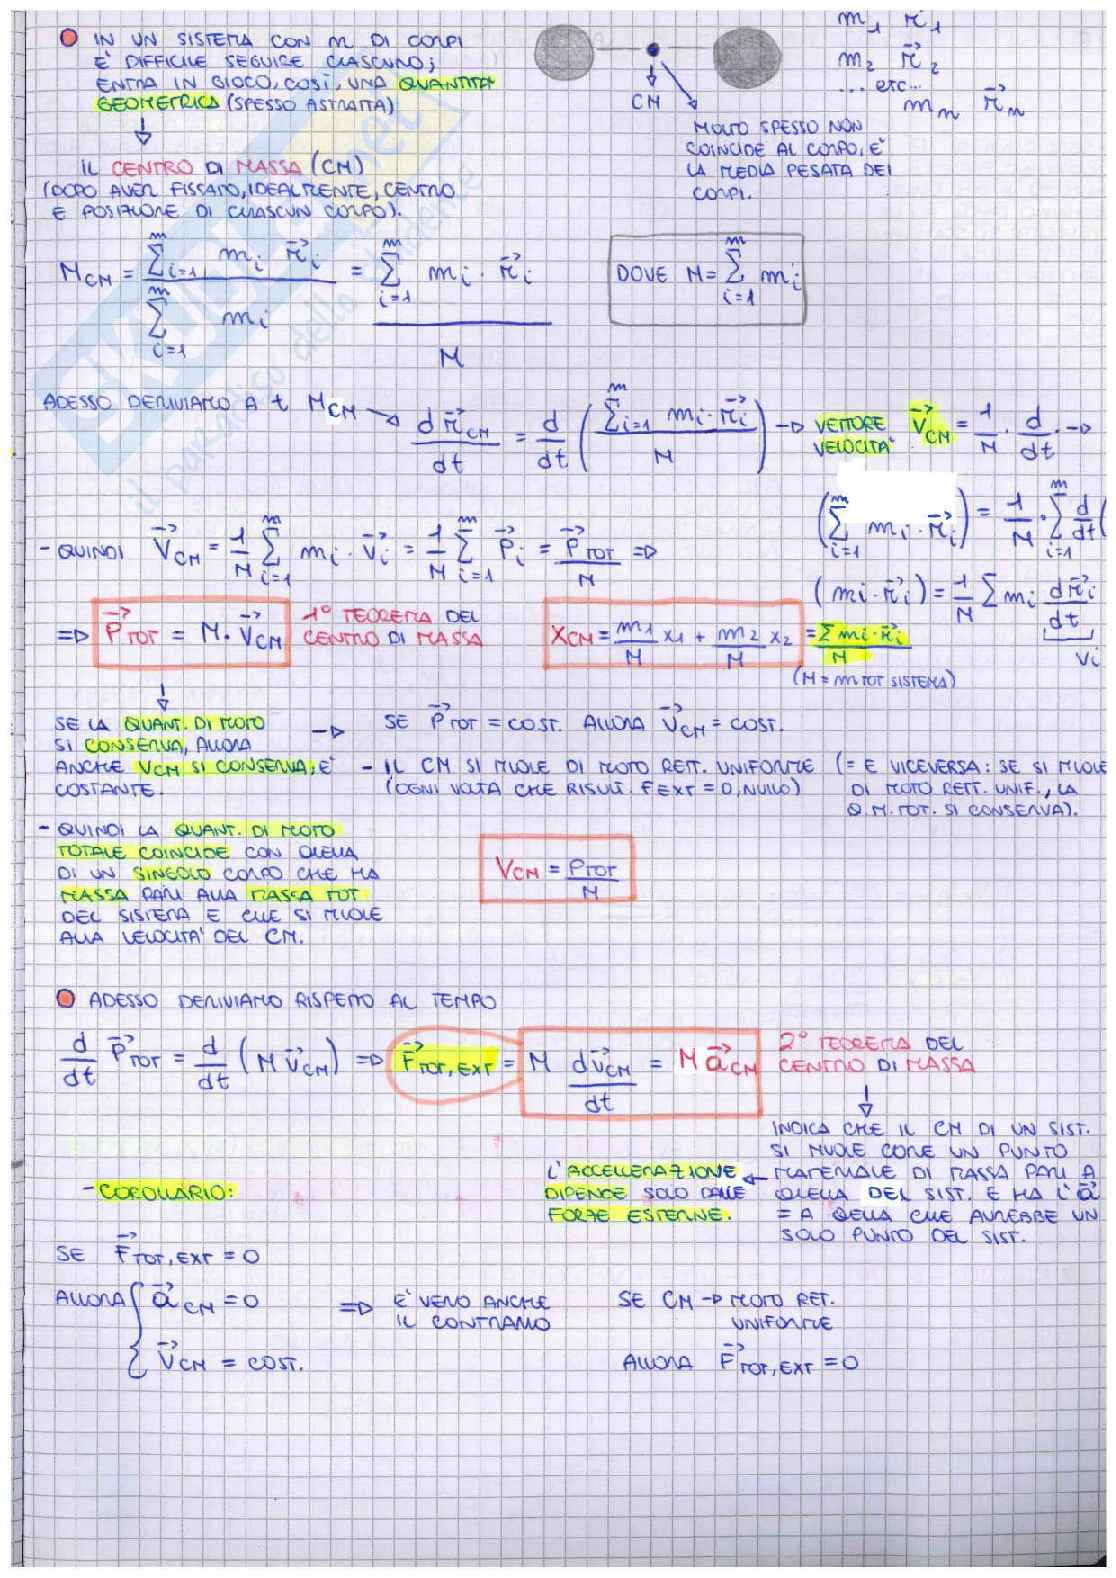 IN UN SISTEMA CON m DI CORPI
È DIFFICILE SEGUIRE CIASCUNO;
ENTRA IN GIOCO, COSÌ, UNA QUANTITÀ
GEOMETRICA (SPESSO ASTRATTA)
↓
IL CENTRO DI MASSA (CM)
(DOPO AVER FISSATO, IDEALMENTE, CENTRO
E POSIZIONE DI CIASCUN CORPO).
CM
m₁ r⃗₁
m₂ r⃗₂
... etc...
mₙ r⃗ₙ
MOLTO SPESSO NON
COINCIDE AL CORPO, È
LA MEDIA PESATA DEI
CORPI.
r_CM = Σⁿᵢ₌₁ mᵢ r⃗ᵢ / Σⁿᵢ₌₁ mᵢ = Σⁿᵢ₌₁ mᵢ · r⃗ᵢ / M
DOVE M = Σⁿᵢ₌₁ mᵢ
ADESSO DERIVIAMO A t r_CM → d r⃗_CM / dt = d/dt ( Σⁿᵢ₌₁ mᵢ · r⃗ᵢ / M ) → VETTORE VELOCITÀ V⃗_CM = 1/M · d/dt · →
(Σⁿᵢ₌₁ mᵢ · r⃗ᵢ) = 1/M · Σⁿᵢ₌₁ d/dt (
(mᵢ · r⃗ᵢ) = 1/M Σ mᵢ d r⃗ᵢ / dt
vᵢ
- QUINDI V⃗_CM = 1/M Σⁿᵢ₌₁ mᵢ · v⃗ᵢ = 1/M Σⁿᵢ₌₁ P⃗ᵢ = P⃗_TOT / M ⇒
⇒ P⃗_TOT = M · V⃗_CM
1° TEOREMA DEL
CENTRO DI MASSA
X_CM = m₁/M x₁ + m₂/M x₂ = Σ mᵢ · r⃗ᵢ / M
(M = m TOT SISTEMA)
↓
SE LA QUANT. DI MOTO
SI CONSERVA, ALLORA
ANCHE V_CM SI CONSERVA, È
COSTANTE.
→ SE P⃗_TOT = COST. ALLORA V⃗_CM = COST.
- IL CM SI MUOVE DI MOTO RETT. UNIFORME
(OGNI VOLTA CHE RISULT. F EXT = 0, NULLO)
(= E VICEVERSA: SE SI MUOVE
DI MOTO RETT. UNIF., LA
Q.M. TOT. SI CONSERVA).
- QUINDI LA QUANT. DI MOTO
TOTALE COINCIDE CON QUELLA
DI UN SINGOLO CORPO CHE HA
MASSA PARI ALLA MASSA TOT
DEL SISTEMA E CHE SI MUOVE
ALLA VELOCITÀ DEL CM.
V_CM = P_TOT / M
ADESSO DERIVIAMO RISPETTO AL TEMPO
d/dt P⃗_TOT = d/dt (M v⃗_CM) ⇒ F⃗_TOT,EXT = M d v⃗_CM / dt = M a⃗_CM
2° TEOREMA DEL
CENTRO DI MASSA
↓
INDICA CHE IL CM DI UN SIST.
SI MUOVE COME UN PUNTO
MATERIALE DI MASSA PARI A
QUELLA DEL SIST. E HA L'a⃗
= A QUELLA CHE AVREBBE UN
SOLO PUNTO DEL SIST.
L'ACCELLERAZIONE ←
DIPENDE SOLO DALLE
FORZE ESTERNE.
- COROLLARIO:
SE F⃗_TOT,EXT = 0
ALLORA { a⃗_CM = 0
V⃗_CM = COST.
⇒ È VERO ANCHE
IL CONTRARIO
SE CM → MOTO RET.
UNIFORME
ALLORA F⃗_TOT,EXT = 0